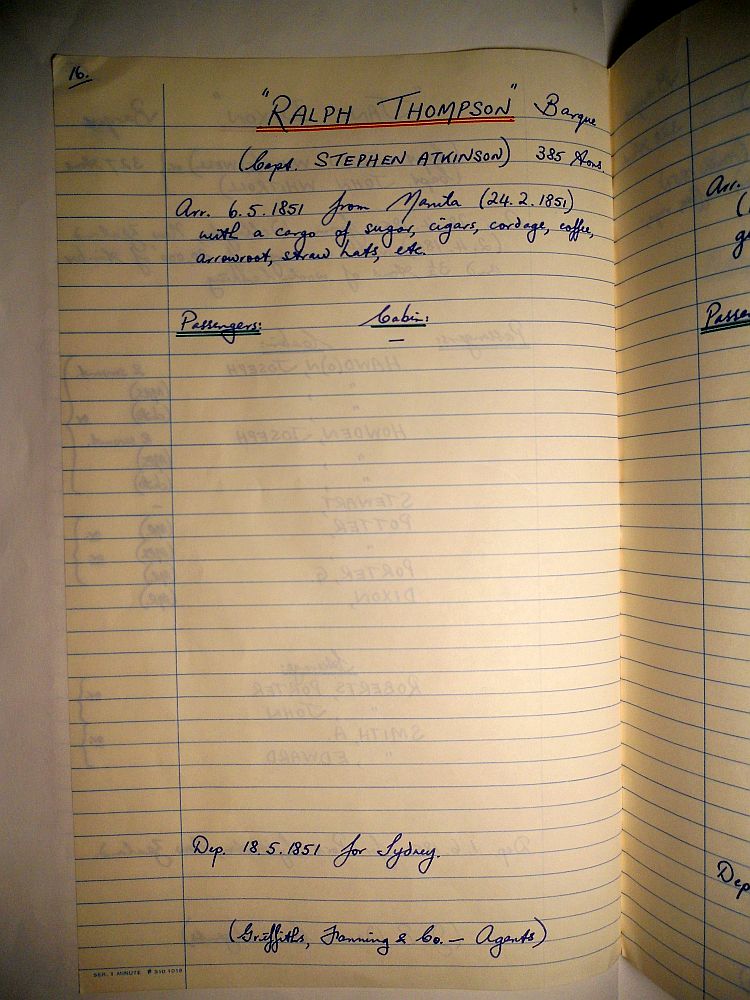 16.
"RALPH THOMPSON" Barque
(Capt. STEPHEN ATKINSON) 385 tons.
Arr. 6.5.1851 from Manila (24.2.1851)
with a cargo of sugar, cigars, cordage, coffee,
arrowroot, straw hats, etc.
Passengers: Cabin:
—
Dep. 18.5.1851 for Sydney.
(Griffiths, Fanning & Co. — Agents)
Arr.
(
Passen
Dep